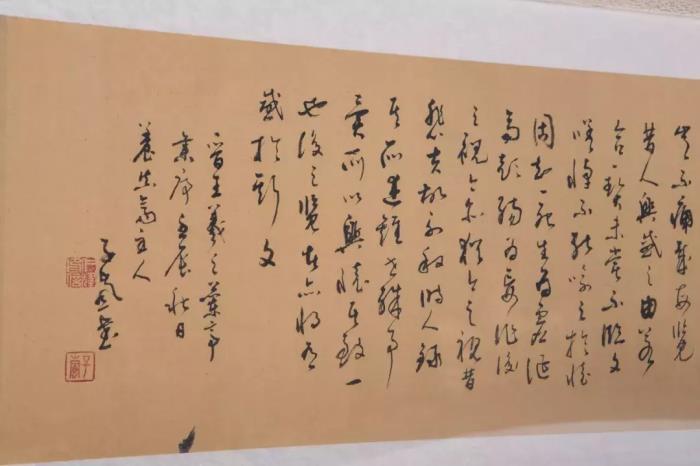 豈不痛哉每覽
昔人興感之由若
合一契未嘗不臨文
嗟悼不能喻之於懷
固知一死生為虛誕
齊彭殤為妄作後
之視今亦猶今之視昔
悲夫故列敘時人錄
其所述雖世殊事
異所以興懷其致一
也後之覽者亦將有
感於斯文
晉王羲之蘭亭
集序壬辰秋日
養齋主人
子書